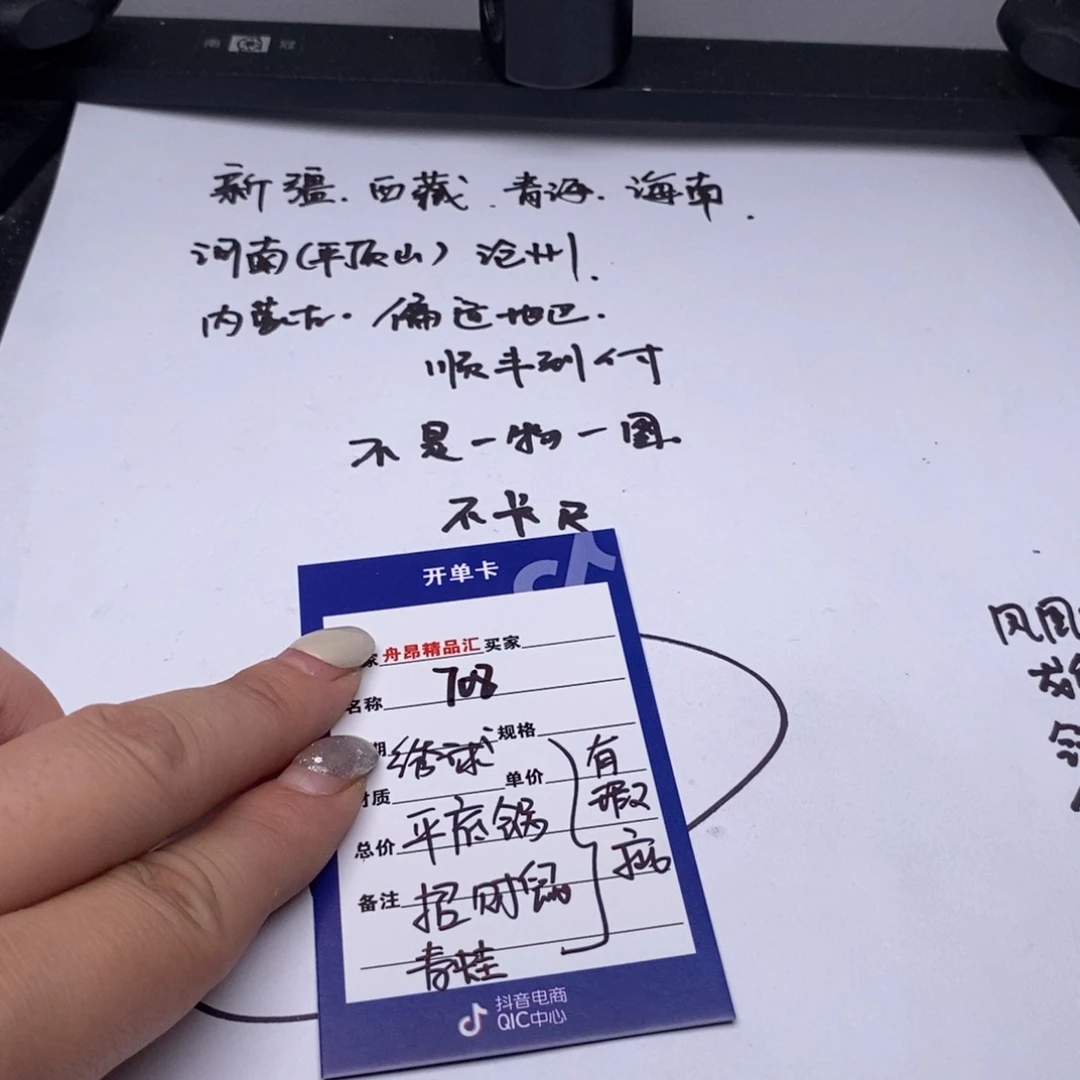 南 冠
新疆.西藏.青海.海南.
河南(平顶山)沧州.
内蒙古.偏远地区.
顺丰到付
不是一物一图.
不卡尺
开单卡
家 舟昂精品汇 买家
名称 708
期 绣球 规格
材质 单价
总价 平底锅
备注 招财鼠
青蛙
有
瑕
疵
抖音电商
QIC中心
凤凰